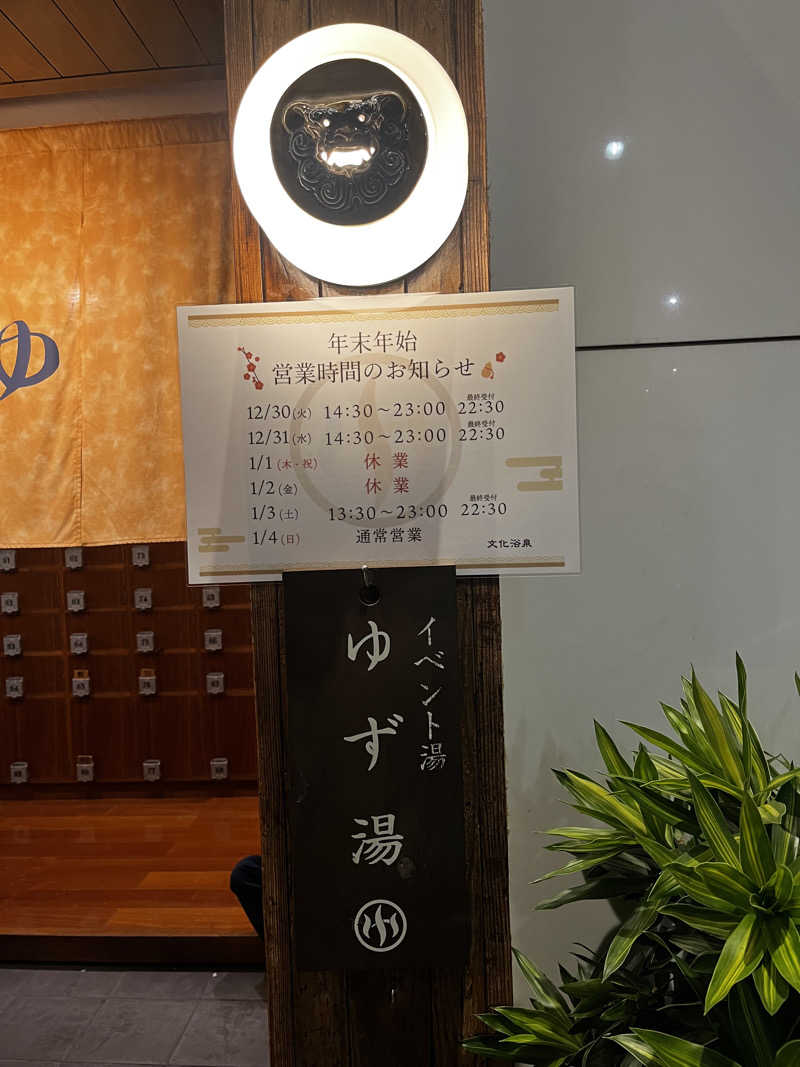 ゆ
年末年始
営業時間のお知らせ
12/30(火) 14:30～23:00 最終受付 22:30
12/31(水) 14:30～23:00 最終受付 22:30
1/1(木・祝) 休業
1/2(金) 休業
1/3(土) 13:30～23:00 最終受付 22:30
1/4(日) 通常営業
文化浴泉
イベント湯
ゆず湯